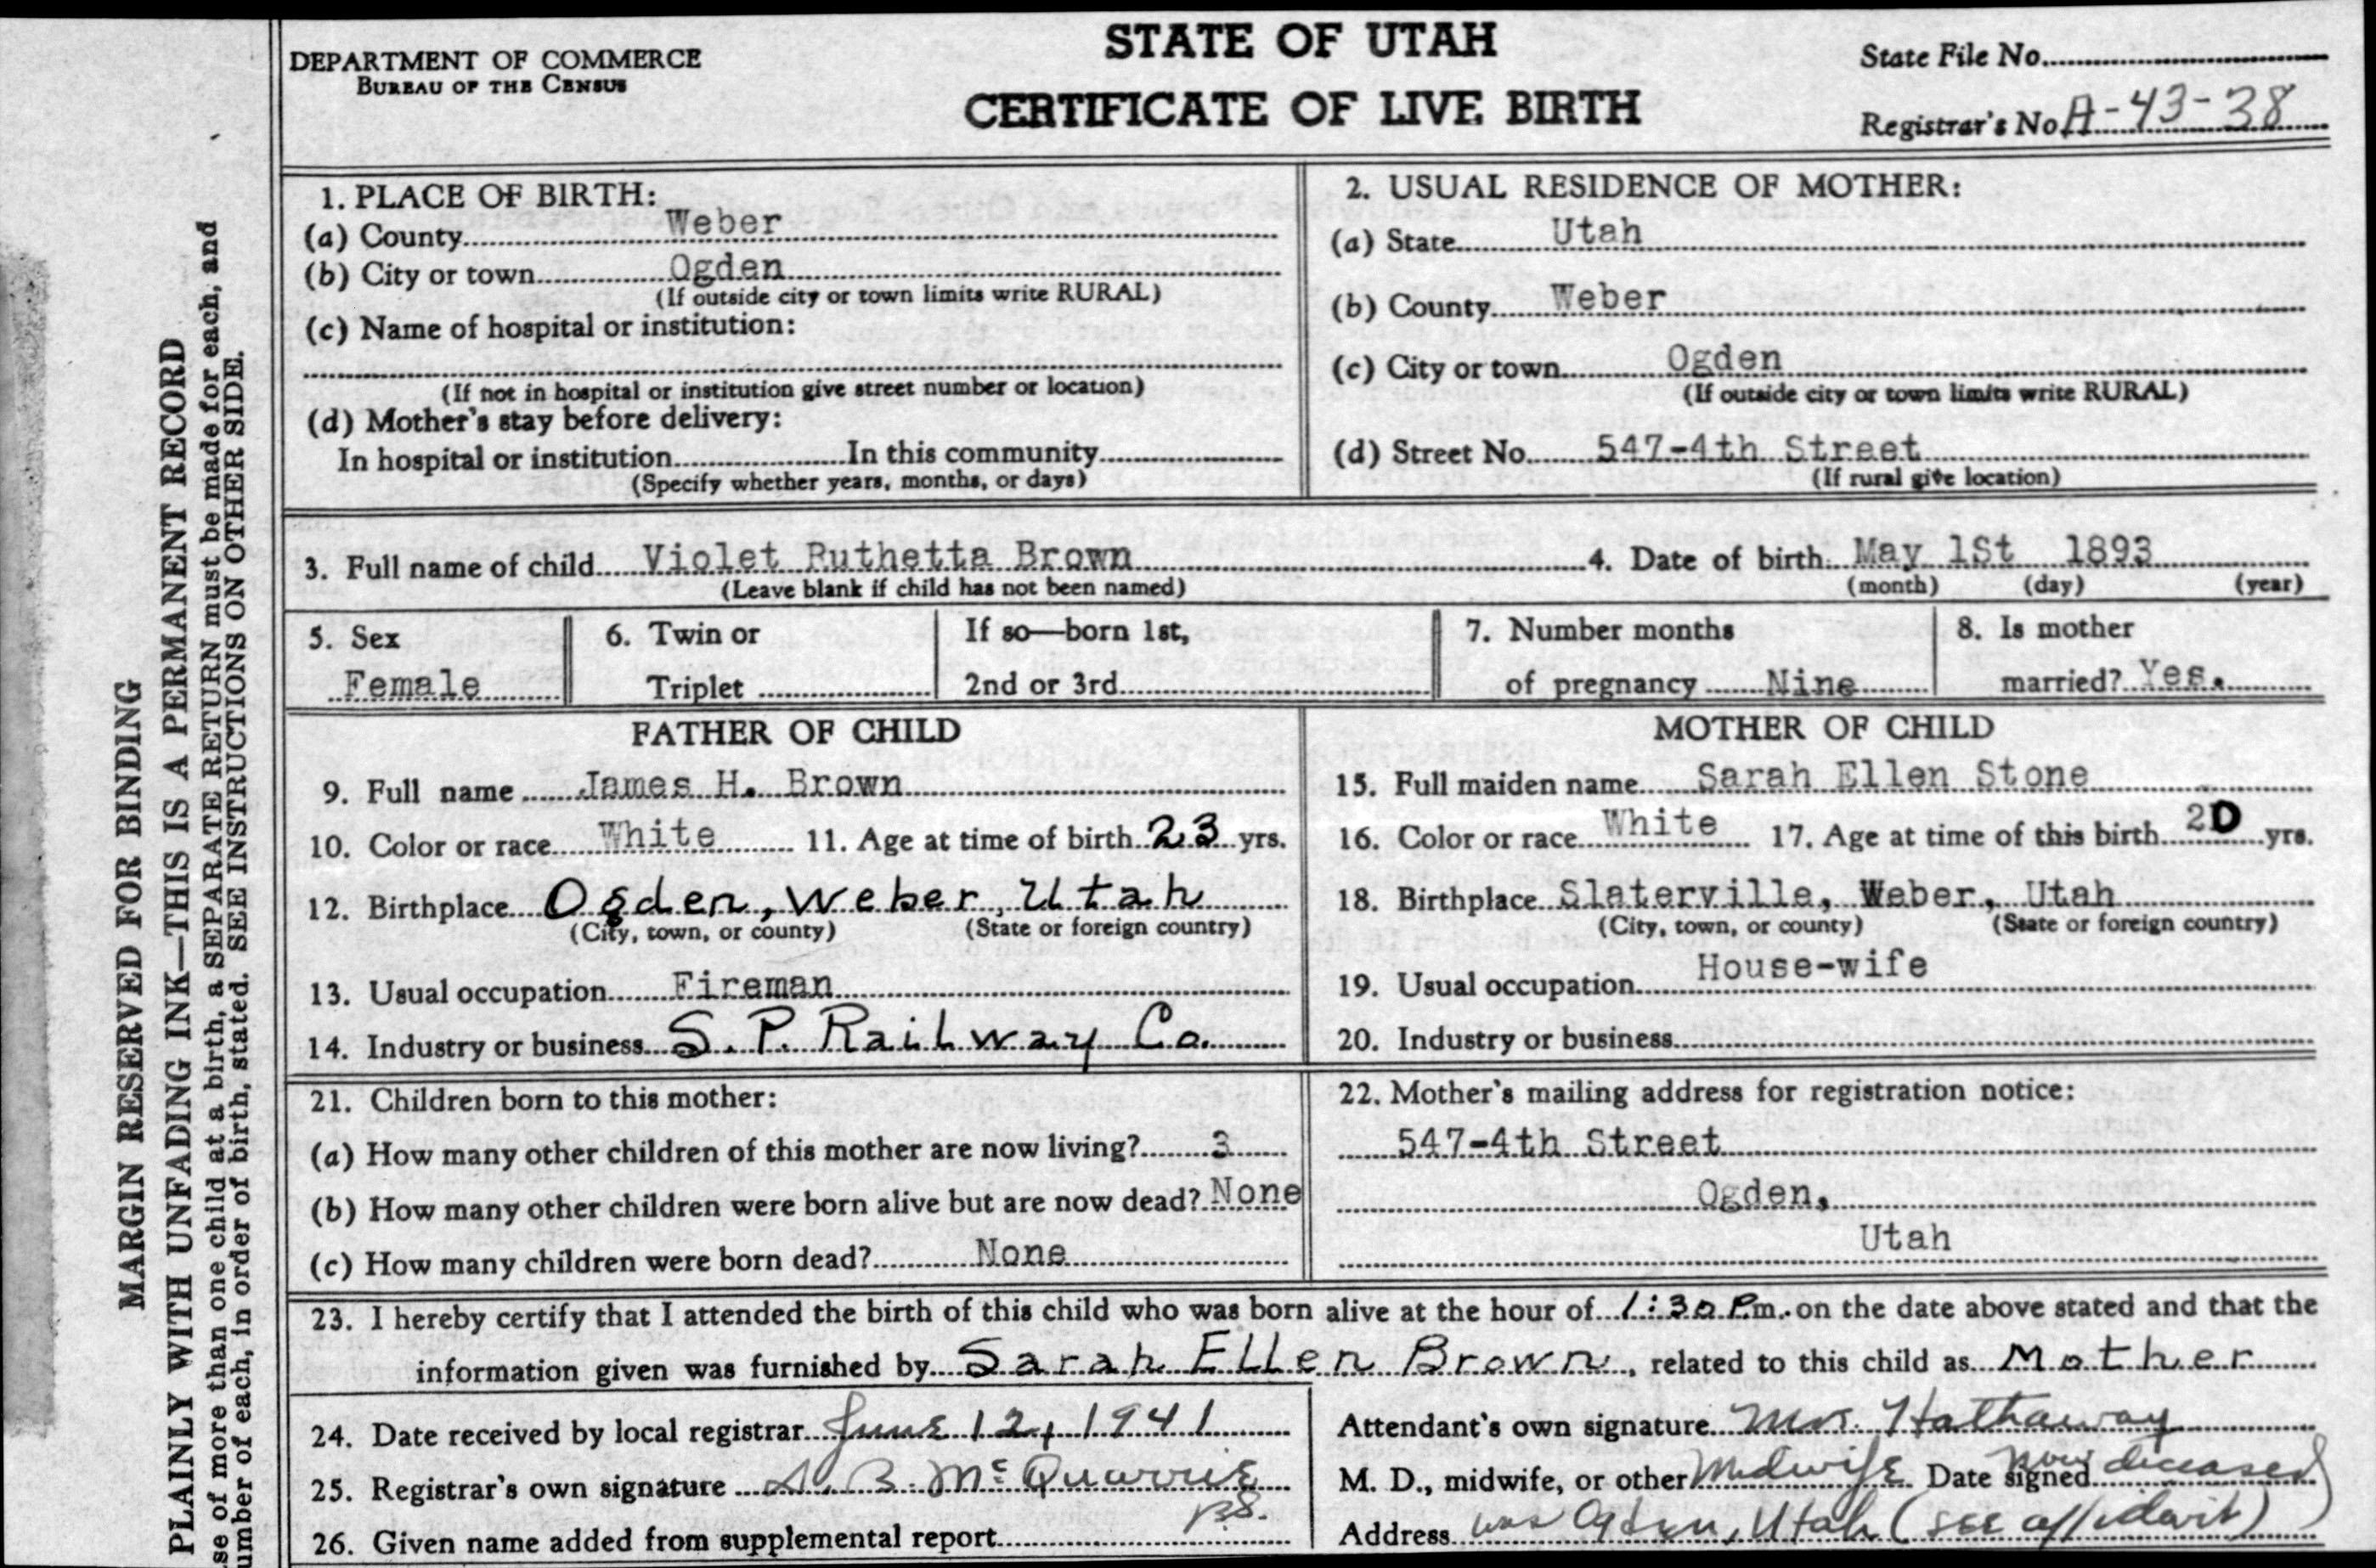 STATE OF UTAH
CERTIFICATE OF LIVE BIRTH
DEPARTMENT OF COMMERCE
BUREAU OF THE CENSUS
State File No.
Registrar's No. A-43-38
MARGIN RESERVED FOR BINDING
PLAINLY WITH UNFADING INK—THIS IS A PERMANENT RECORD
se of more than one child at a birth, a SEPARATE RETURN must be made for each, and
umber of each, in order of birth, stated. SEE INSTRUCTIONS ON OTHER SIDE.
1. PLACE OF BIRTH:
(a) County Weber
(b) City or town Ogden
(If outside city or town limits write RURAL)
(c) Name of hospital or institution:
(If not in hospital or institution give street number or location)
(d) Mother's stay before delivery:
In hospital or institution In this community
(Specify whether years, months, or days)
2. USUAL RESIDENCE OF MOTHER:
(a) State Utah
(b) County Weber
(c) City or town Ogden
(If outside city or town limits write RURAL)
(d) Street No. 547-4th Street
(If rural give location)
3. Full name of child Violet Ruthetta Brown 4. Date of birth May 1St 1893
(Leave blank if child has not been named) (month) (day) (year)
5. Sex
Female
6. Twin or
Triplet
If so—born 1st,
2nd or 3rd
7. Number months
of pregnancy Nine
8. Is mother
married? Yes.
FATHER OF CHILD
9. Full name James H. Brown
10. Color or race White 11. Age at time of birth 23 yrs.
12. Birthplace Ogden, Weber, Utah
(City, town, or county) (State or foreign country)
13. Usual occupation Fireman
14. Industry or business S. P. Railway Co.
MOTHER OF CHILD
15. Full maiden name Sarah Ellen Stone
16. Color or race White 17. Age at time of this birth 20 yrs.
18. Birthplace Slaterville, Weber, Utah
(City, town, or county) (State or foreign country)
19. Usual occupation House-wife
20. Industry or business
21. Children born to this mother:
(a) How many other children of this mother are now living? 3
(b) How many other children were born alive but are now dead? None
(c) How many children were born dead? None
22. Mother's mailing address for registration notice:
547-4th Street
Ogden,
Utah
23. I hereby certify that I attended the birth of this child who was born alive at the hour of 1:30 P.m. on the date above stated and that the
information given was furnished by Sarah Ellen Brown, related to this child as Mother
24. Date received by local registrar June 12, 1941
25. Registrar's own signature A. B. McQuarrie
B.S.
26. Given name added from supplemental report
Attendant's own signature Mrs. Hathaway
M. D., midwife, or other Midwife Date signed now deceased
Address was Ogden, Utah (see affidavit)